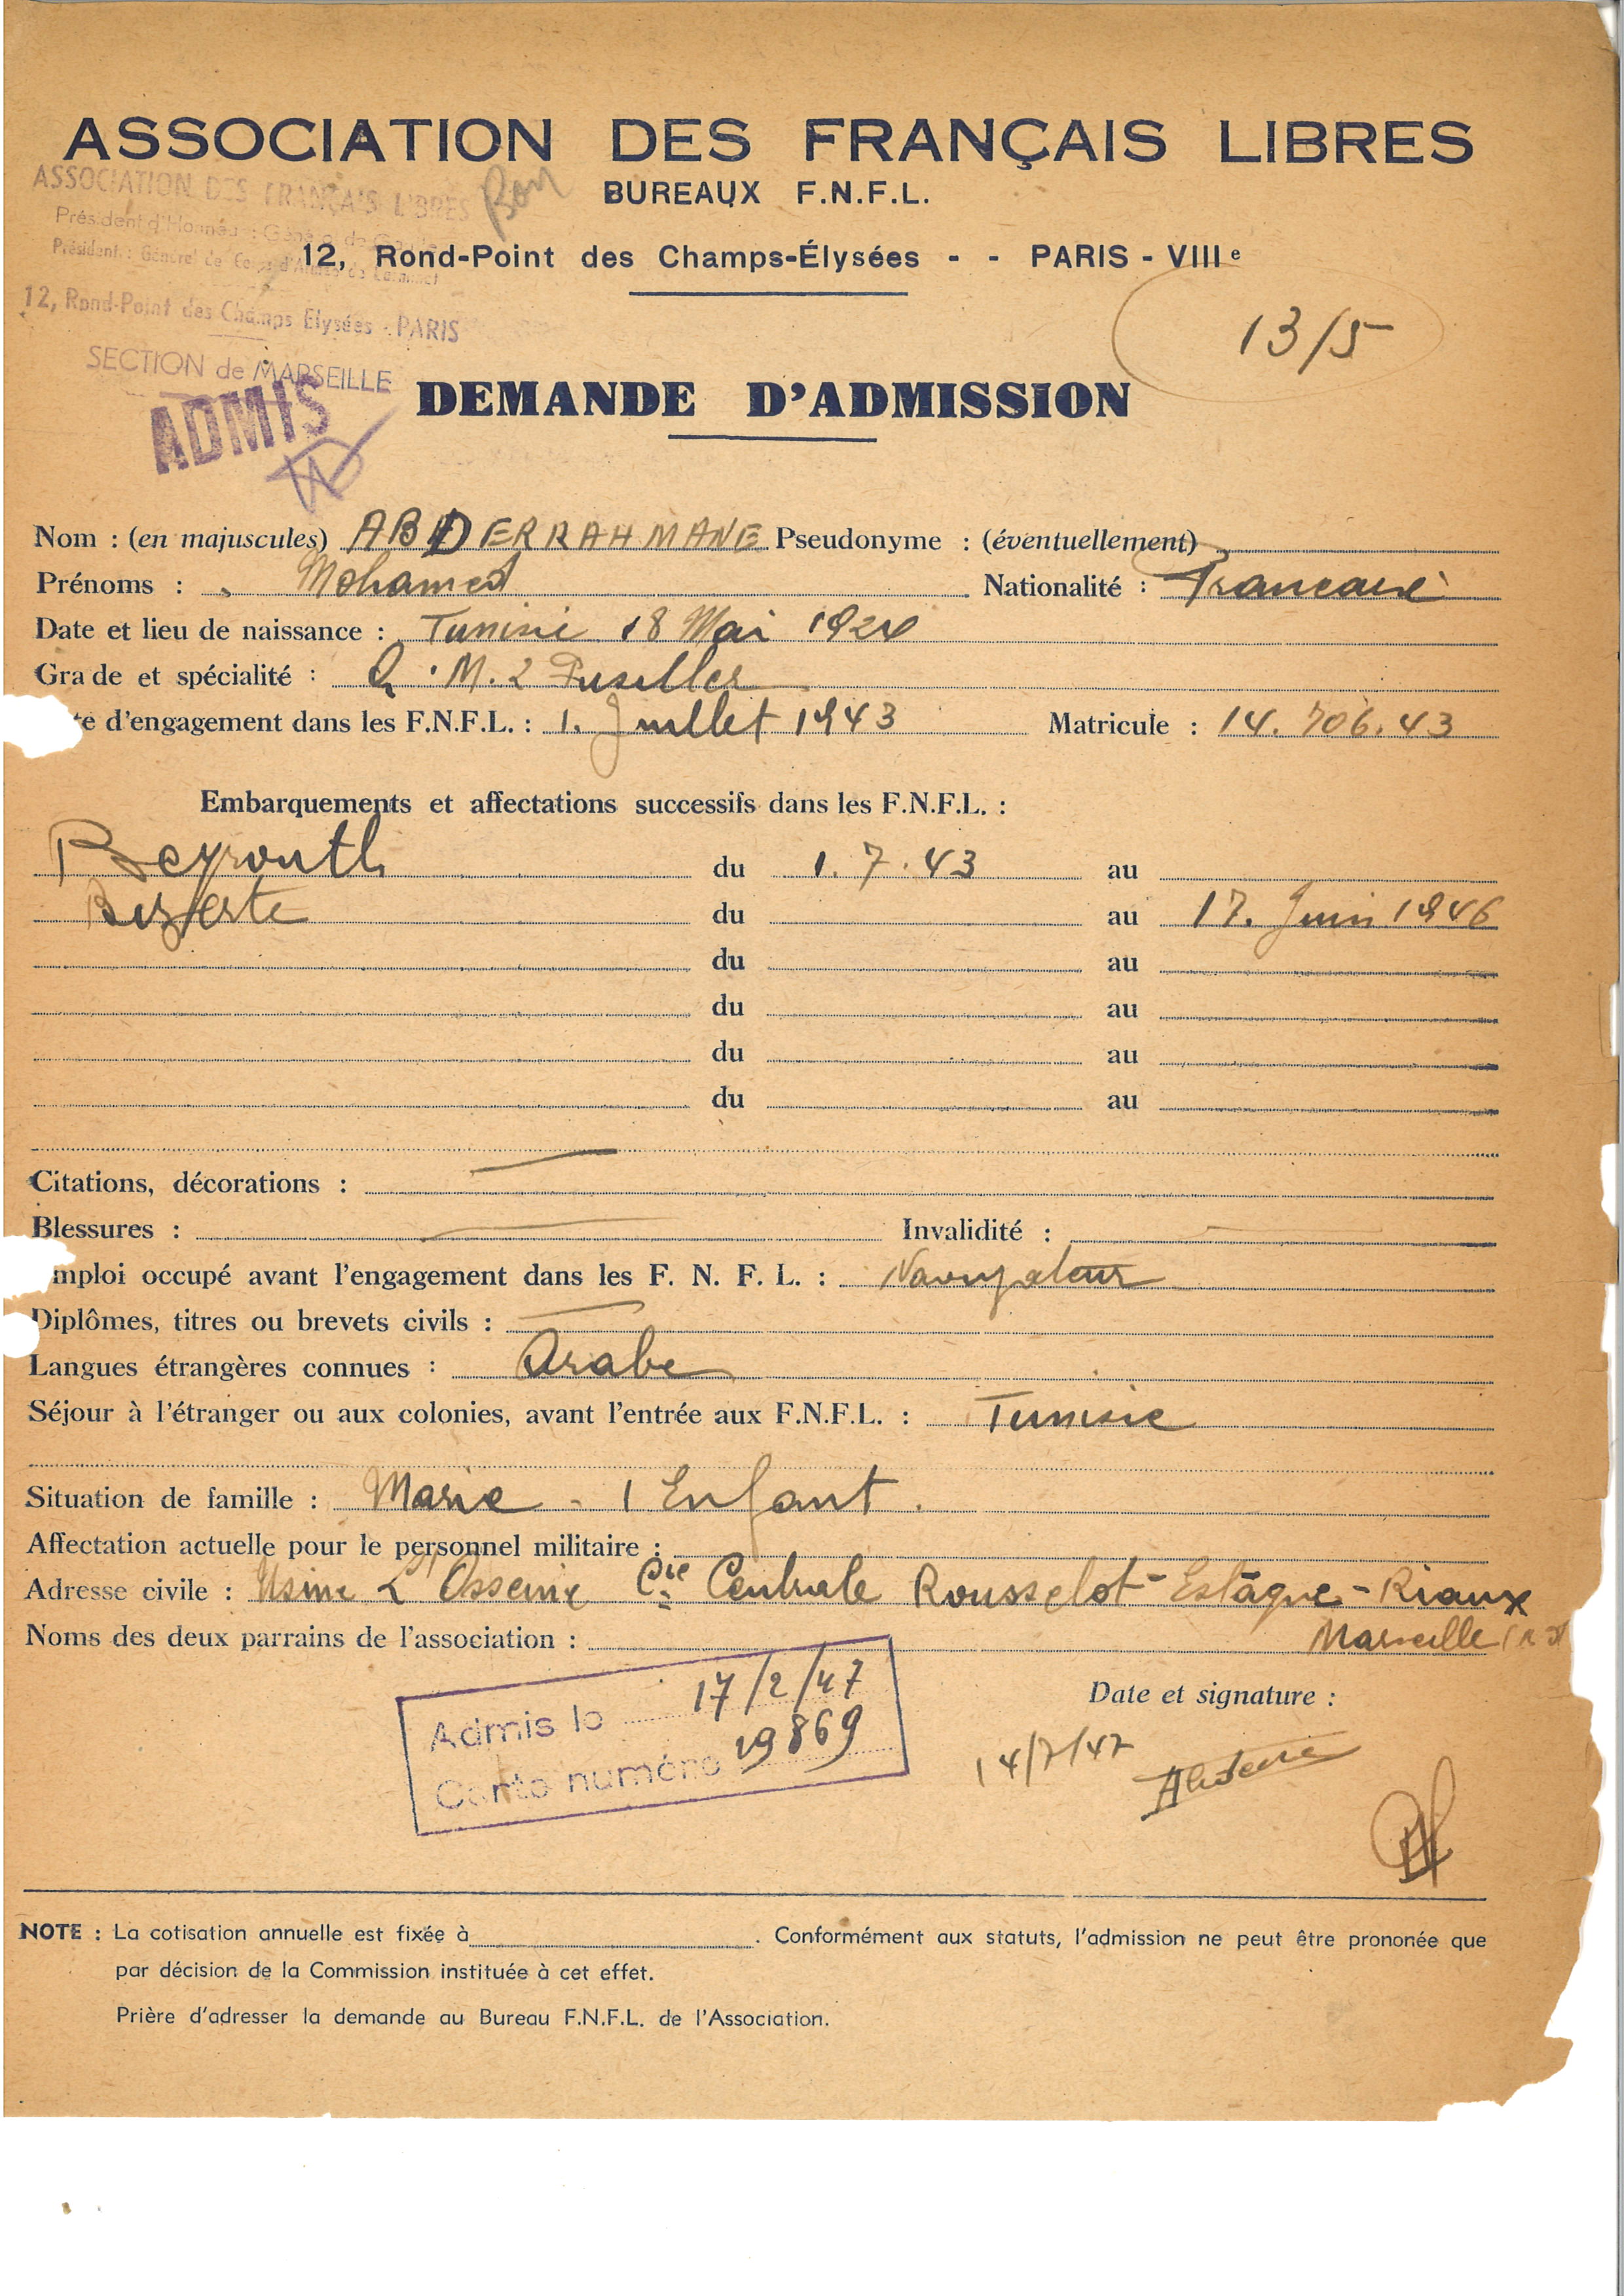 ASSOCIATION DES FRANÇAIS LIBRES
BUREAUX F.N.F.L.
12, Rond-Point des Champs-Élysées - - PARIS - VIIIe
ASSOCIATION DES FRANÇAIS LIBRES
Bon
Président d'Honneur : Général de Gaulle
Président : Général de Corps d'Armée de Larminat
12, Rond-Point des Champs Elysées - PARIS
SECTION de MARSEILLE
13/5
ADMIS
DEMANDE D'ADMISSION
Nom : (en majuscules) ABDERRAHMANE Pseudonyme : (éventuellement)
Prénoms : Mohamed Nationalité : Francaise
Date et lieu de naissance : Tunisie 18 Mai 1924
Grade et spécialité : Q.M.2 Fusiller
te d'engagement dans les F.N.F.L. : 1. Juillet 1943 Matricule : 14.706.43
Embarquements et affectations successifs dans les F.N.F.L. :
Beyrouth du 1.7.43 au
Bizerte du au 17. Juin 1946
du au
du au
du au
du au
Citations, décorations : —
Blessures : — Invalidité : —
mploi occupé avant l'engagement dans les F. N. F. L. : Navigateur
Diplômes, titres ou brevets civils : —
Langues étrangères connues : Arabe
Séjour à l'étranger ou aux colonies, avant l'entrée aux F.N.F.L. : Tunisie
Situation de famille : Marie - 1 Enfant.
Affectation actuelle pour le personnel militaire :
Adresse civile : Usine L'Osseine Cie Centrale Rousselot - Estaque - Riaux
Noms des deux parrains de l'association : Marseille
Admis le 17/2/47
Carte numéro 29869
Date et signature :
14/7/47
NOTE : La cotisation annuelle est fixée à . Conformément aux statuts, l'admission ne peut être prononée que
par décision de la Commission instituée à cet effet.
Prière d'adresser la demande au Bureau F.N.F.L. de l'Association.